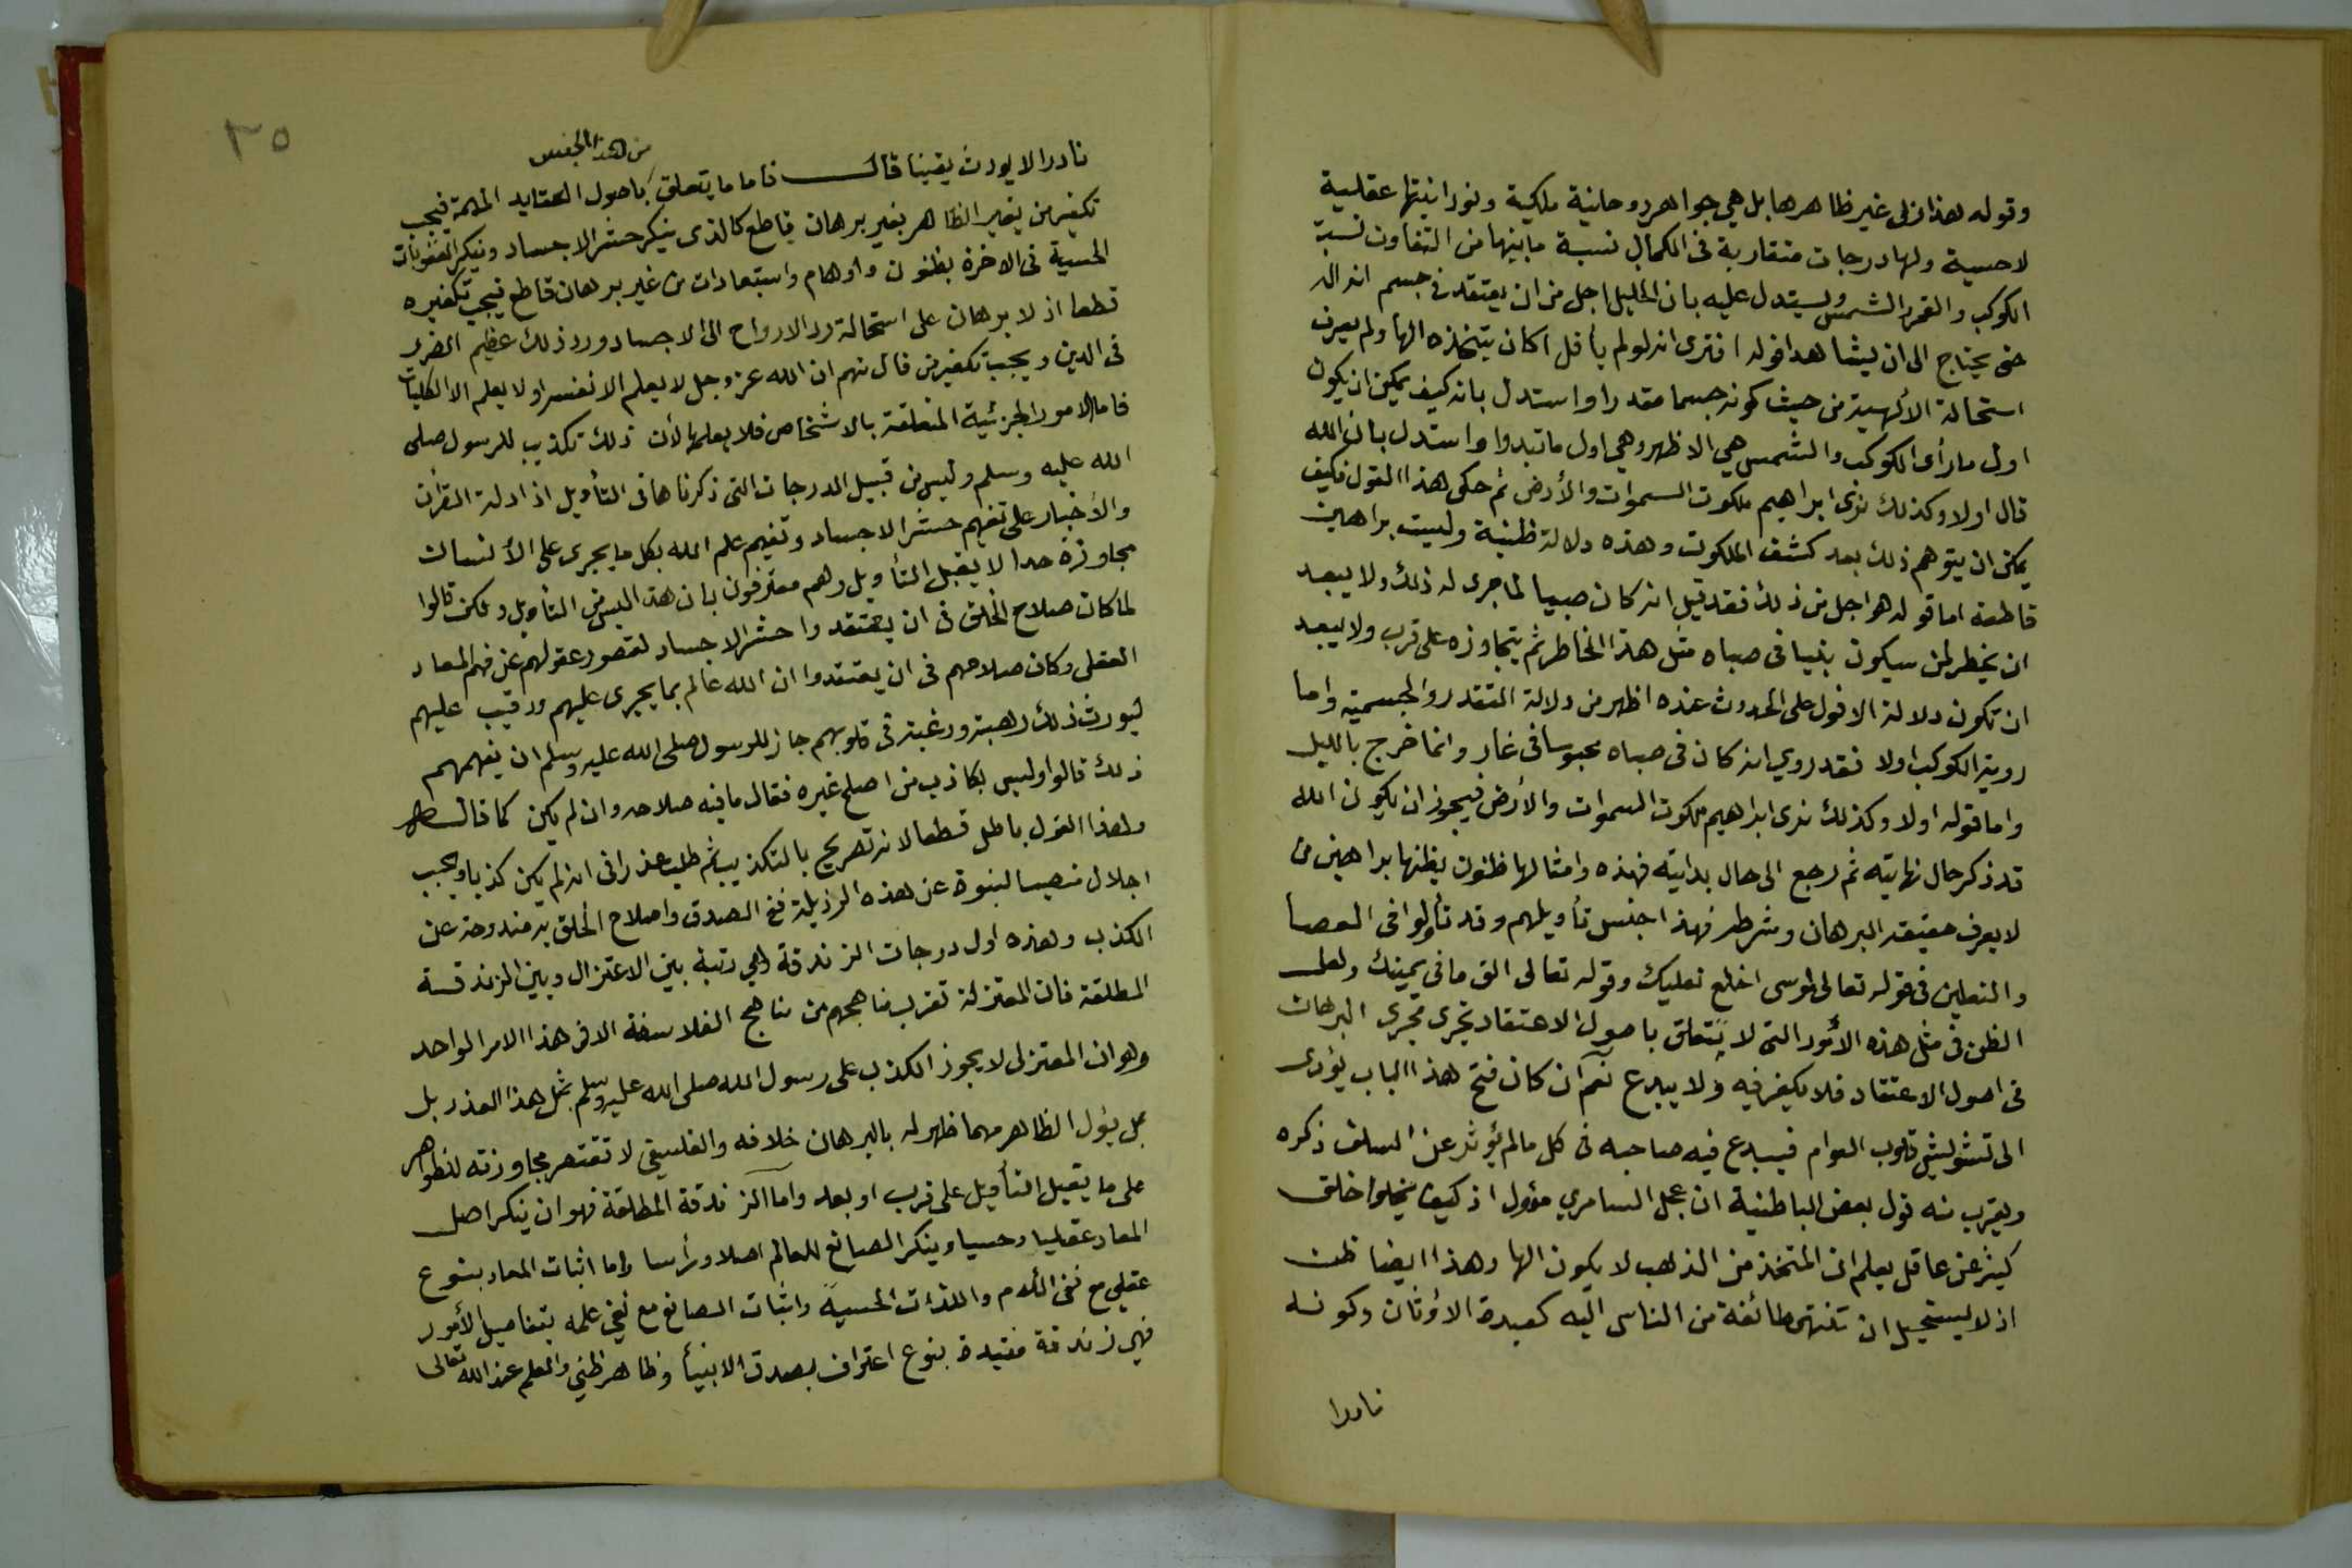 وقوله هذا ربى غير ظاهرها بل هي جواهر روحانية ملكية ونورانيتها عقلية
لا حسية ولها درجات متقاربة فى الكمال نسبة ما بينها من التفاوت نسبة
الكوكب والقمر والشمس ويستدل عليه بان الخليل اجل من ان يعتقد فى جسم انه اله
حتى يحتاج الى ان يشاهد افوله افترى انه لو لم يأفل اكان يتخذه الها ولم يعرف
استحالة الألهية من حيث كونه جسما مقدرا واستدل بانه كيف يمكن ان يكون
اول ما رأى الكوكب والشمس هي الاظهر وهي اول ما تبدوا واستدل بان الله
قال اولا وكذلك نرى ابراهيم ملكوت السموات والأرض ثم حكى هذا القول فكيف
يمكن ان يتوهم ذلك بعد كشف الملكوت وهذه دلالة ظنية وليست براهين
قاطعة اما قوله هو اجل من ذلك فقد قيل انه كان صبيا لما جرى له ذلك ولا يبعد
ان يخطر لمن سيكون نبيا فى صباه مثل هذا الخاطر ثم يتجاوزه على قرب ولا يبعد
ان تكون دلالة الافول على الحدوث عنده اظهر من دلالة التقدر والجسمية واما
روية الكوكب اولا فقد روي انه كان فى صباه محبوسا فى غار وانما خرج بالليل
واما قوله اولا وكذلك نرى ابراهيم ملكوت السموات والأرض فيجوز ان يكون الله
قد ذكر حال نهايته ثم رجع الى حال بدايته فهذه وامثالها ظنون يظنها براهين من
لا يعرف حقيقة البرهان وشرطه فهذا جنس تأويلهم وقد تأولوا فى العصا
والنعلين فى قوله تعالى لموسى اخلع نعليك وقوله تعالى الق ما فى يمينك ولعل
الظن فى مثل هذه الأمور التى لا تتعلق باصول الاعتقاد تجرى مجرى البرهان
فى اصول الاعتقاد فلا يكفر فيه ولا يبدع نعم ان كان فتح هذا الباب يؤدى
الى تشويش قلوب العوام فيبدع فيه صاحبه فى كل ما لم يؤثر عن السلف ذكره
ويقرب منه قول بعض الباطنية ان عجل السامري مؤول اذ كيف يخلوا خلق
كثير عن عاقل يعلم ان المتخذ من الذهب لا يكون الها وهذا ايضا ظن
اذ لا يستحيل ان تنتهى طائفة من الناس اليه كعبدة الاوثان وكونه
نادرا
٣٥
نادرا لا يورث يقينا قال فاما ما يتعلق من هذا الجنس باصول العقايد المهمة فيجب
تكفير من يغير الظاهر بغير برهان قاطع كالذى ينكر حشر الاجساد وينكر العقوبات
الحسية فى الاخرة بظنون واوهام واستبعادات من غير برهان قاطع فيجب تكفيره
قطعا اذ لا برهان على استحالة رد الارواح الى الاجساد ورد ذلك عظيم الضرر
فى الدين ويجب تكفير من قال منهم ان الله عز وجل لا يعلم الا نفسه او لا يعلم الا الكليات
فاما الامور الجزئية المتعلقة بالاشخاص فلا يعلمها لأن ذلك تكذيب للرسول صلى
الله عليه وسلم وليس من قبيل الدرجات التى ذكرناها فى التأويل اذ ادلة القران
والأخبار على تفهيم حشر الاجساد وتفهيم علم الله بكل ما يجرى على الأنسان
مجاوزة حدا لا يقبل التأويل وهم معترفون بان هذا ليس من التأويل ولكن قالوا
لما كان صلاح الخلق فى ان يعتقدوا حشر الاجساد لقصور عقولهم عن فهم المعاد
العقلى وكان صلاحهم فى ان يعتقدوا ان الله عالم بما يجرى عليهم ورقيب عليهم
ليورث ذلك رهبة ورغبة فى قلوبهم جاز للرسول صلى الله عليه وسلم ان يفهمهم
ذلك قالوا وليس بكاذب من اصلح غيره فقال ما فيه صلاحه وان لم يكن كما قاله
وهذا القول باطل قطعا لانه تصريح بالتكذيب ثم طلب عذرا فى انه لم يكن كذبا ويجب
اجلال منصب النبوة عن هذه الرذيلة ففى الصدق واصلاح الخلق به مندوحة عن
الكذب وهذه اول درجات الزندقة وهي رتبة بين الاعتزال وبين الزندقة
المطلقة فان المعتزلة تقرب مناهجهم من مناهج الفلاسفة الا فى هذا الامر الواحد
وهو ان المعتزلى لا يجوز الكذب على رسول الله صلى الله عليه وسلم بمثل هذا العذر بل
بل يؤل الظاهر مهما ظهر له بالبرهان خلافه والفلسفى لا تقتصر مجاوزته للظواهر
على ما يقبل التأويل على قرب او بعد واما الزندقة المطلقة فهو ان ينكر اصل
المعاد عقليا وحسيا وينكر الصانع للعالم اصلا ورأسا واما اثبات المعاد بنوع
عقلي مع نفى الألام واللذات الحسية واثبات الصانع مع نفي علمه بتفاصيل الأمور
فهي زندقة مقيدة بنوع اعتراف بصدق الانبيأ وظاهر ظني والعلم عند الله تعالى